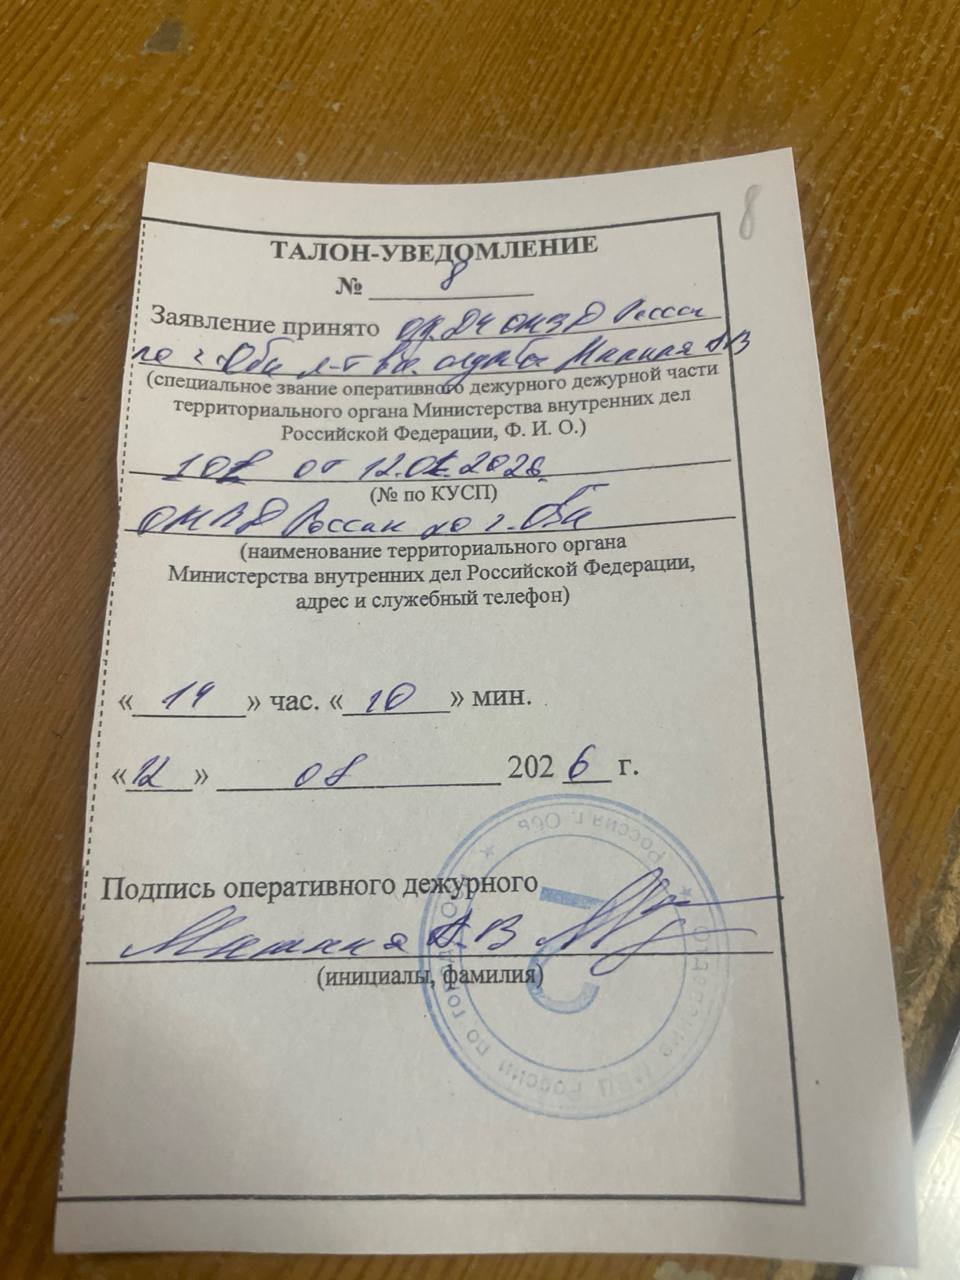 8
ТАЛОН-УВЕДОМЛЕНИЕ
№ 8
Заявление принято ОД ДЧ ОМВД России
по г. Оби л-т вн. службы А.В
(специальное звание оперативного дежурного дежурной части
территориального органа Министерства внутренних дел
Российской Федерации, Ф. И. О.)
от 12. 2026
(№ по КУСП)
ОМВД России по г. Оби
(наименование территориального органа
Министерства внутренних дел Российской Федерации,
адрес и служебный телефон)
« » час. « 10 » мин.
«12» 2026 г.
Подпись оперативного дежурного
А.В
(инициалы, фамилия)
Отделение МВД России по городу Обь
Россия г. Обь
2